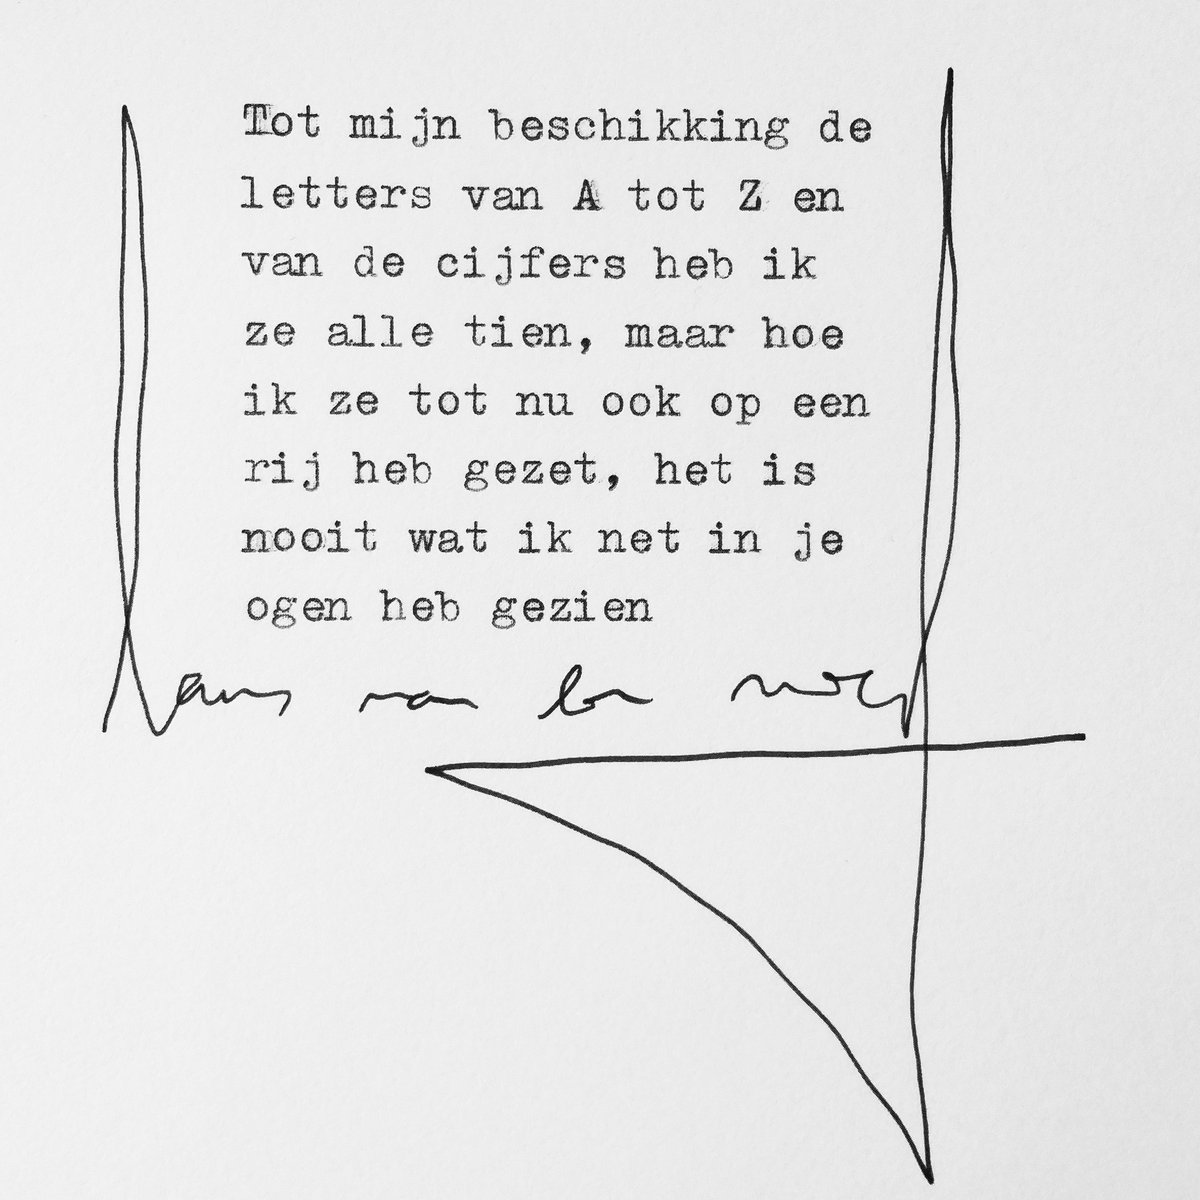 Tot mijn beschikking de
letters van A tot Z en
van de cijfers heb ik
ze alle tien, maar hoe
ik ze tot nu ook op een
rij heb gezet, het is
nooit wat ik net in je
ogen heb gezien